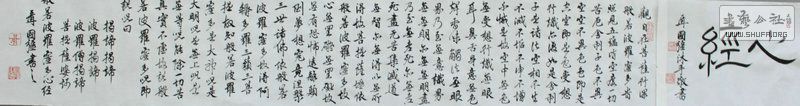 心經
觀自在菩薩行深
般若波羅蜜多時
照見五蘊皆空度一切
苦厄舍利子色不異
空空不異色色即是
空空即是色受想
行識亦復如是舍利
子是諸法空相不生
不滅不垢不淨不增
不減是故空中無色
無受想行識無眼
耳鼻舌身意無
色聲香味觸法無眼
界乃至無意識界
無無明亦無無明
盡乃至無老死亦無老
死盡無苦集滅道
無智亦無得以無所
得故菩提薩埵依
般若波羅蜜多故
心無罣礙無罣礙故
無有恐怖遠離顛
倒夢想究竟涅槃
三世諸佛依般若
波羅蜜多故得阿
耨多羅三藐三菩
提故知般若波羅
蜜多是大神咒是
大明咒是無上咒是無
等等咒能除一切苦
真實不虛故說般
若波羅蜜多咒即
說咒曰
揭諦揭諦
波羅揭諦
波羅僧揭諦
菩提薩婆訶
般若波羅蜜多心經
书法公社
WWW.SHUFA.ORG